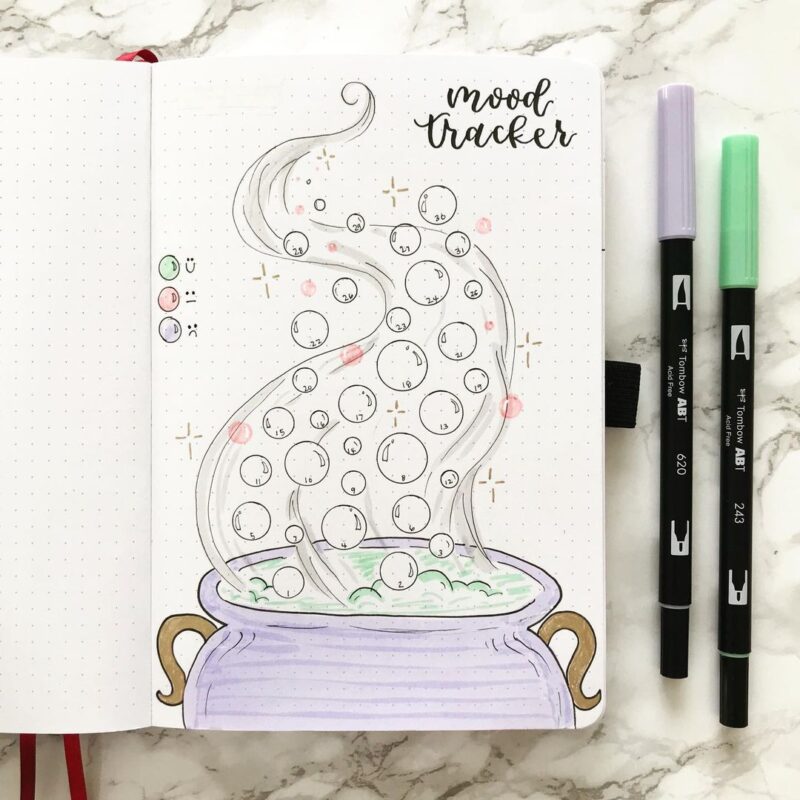 mood
tracker
30
29
27
28
31
:)
24
26
25
:|
23
22
:(
21
18
20
19
17
13
16
15
14
8
10
11
12
9
6
5
4
7
3
2
1
Tombow ABT
Acid Free
620
Tombow ABT
Acid Free
243